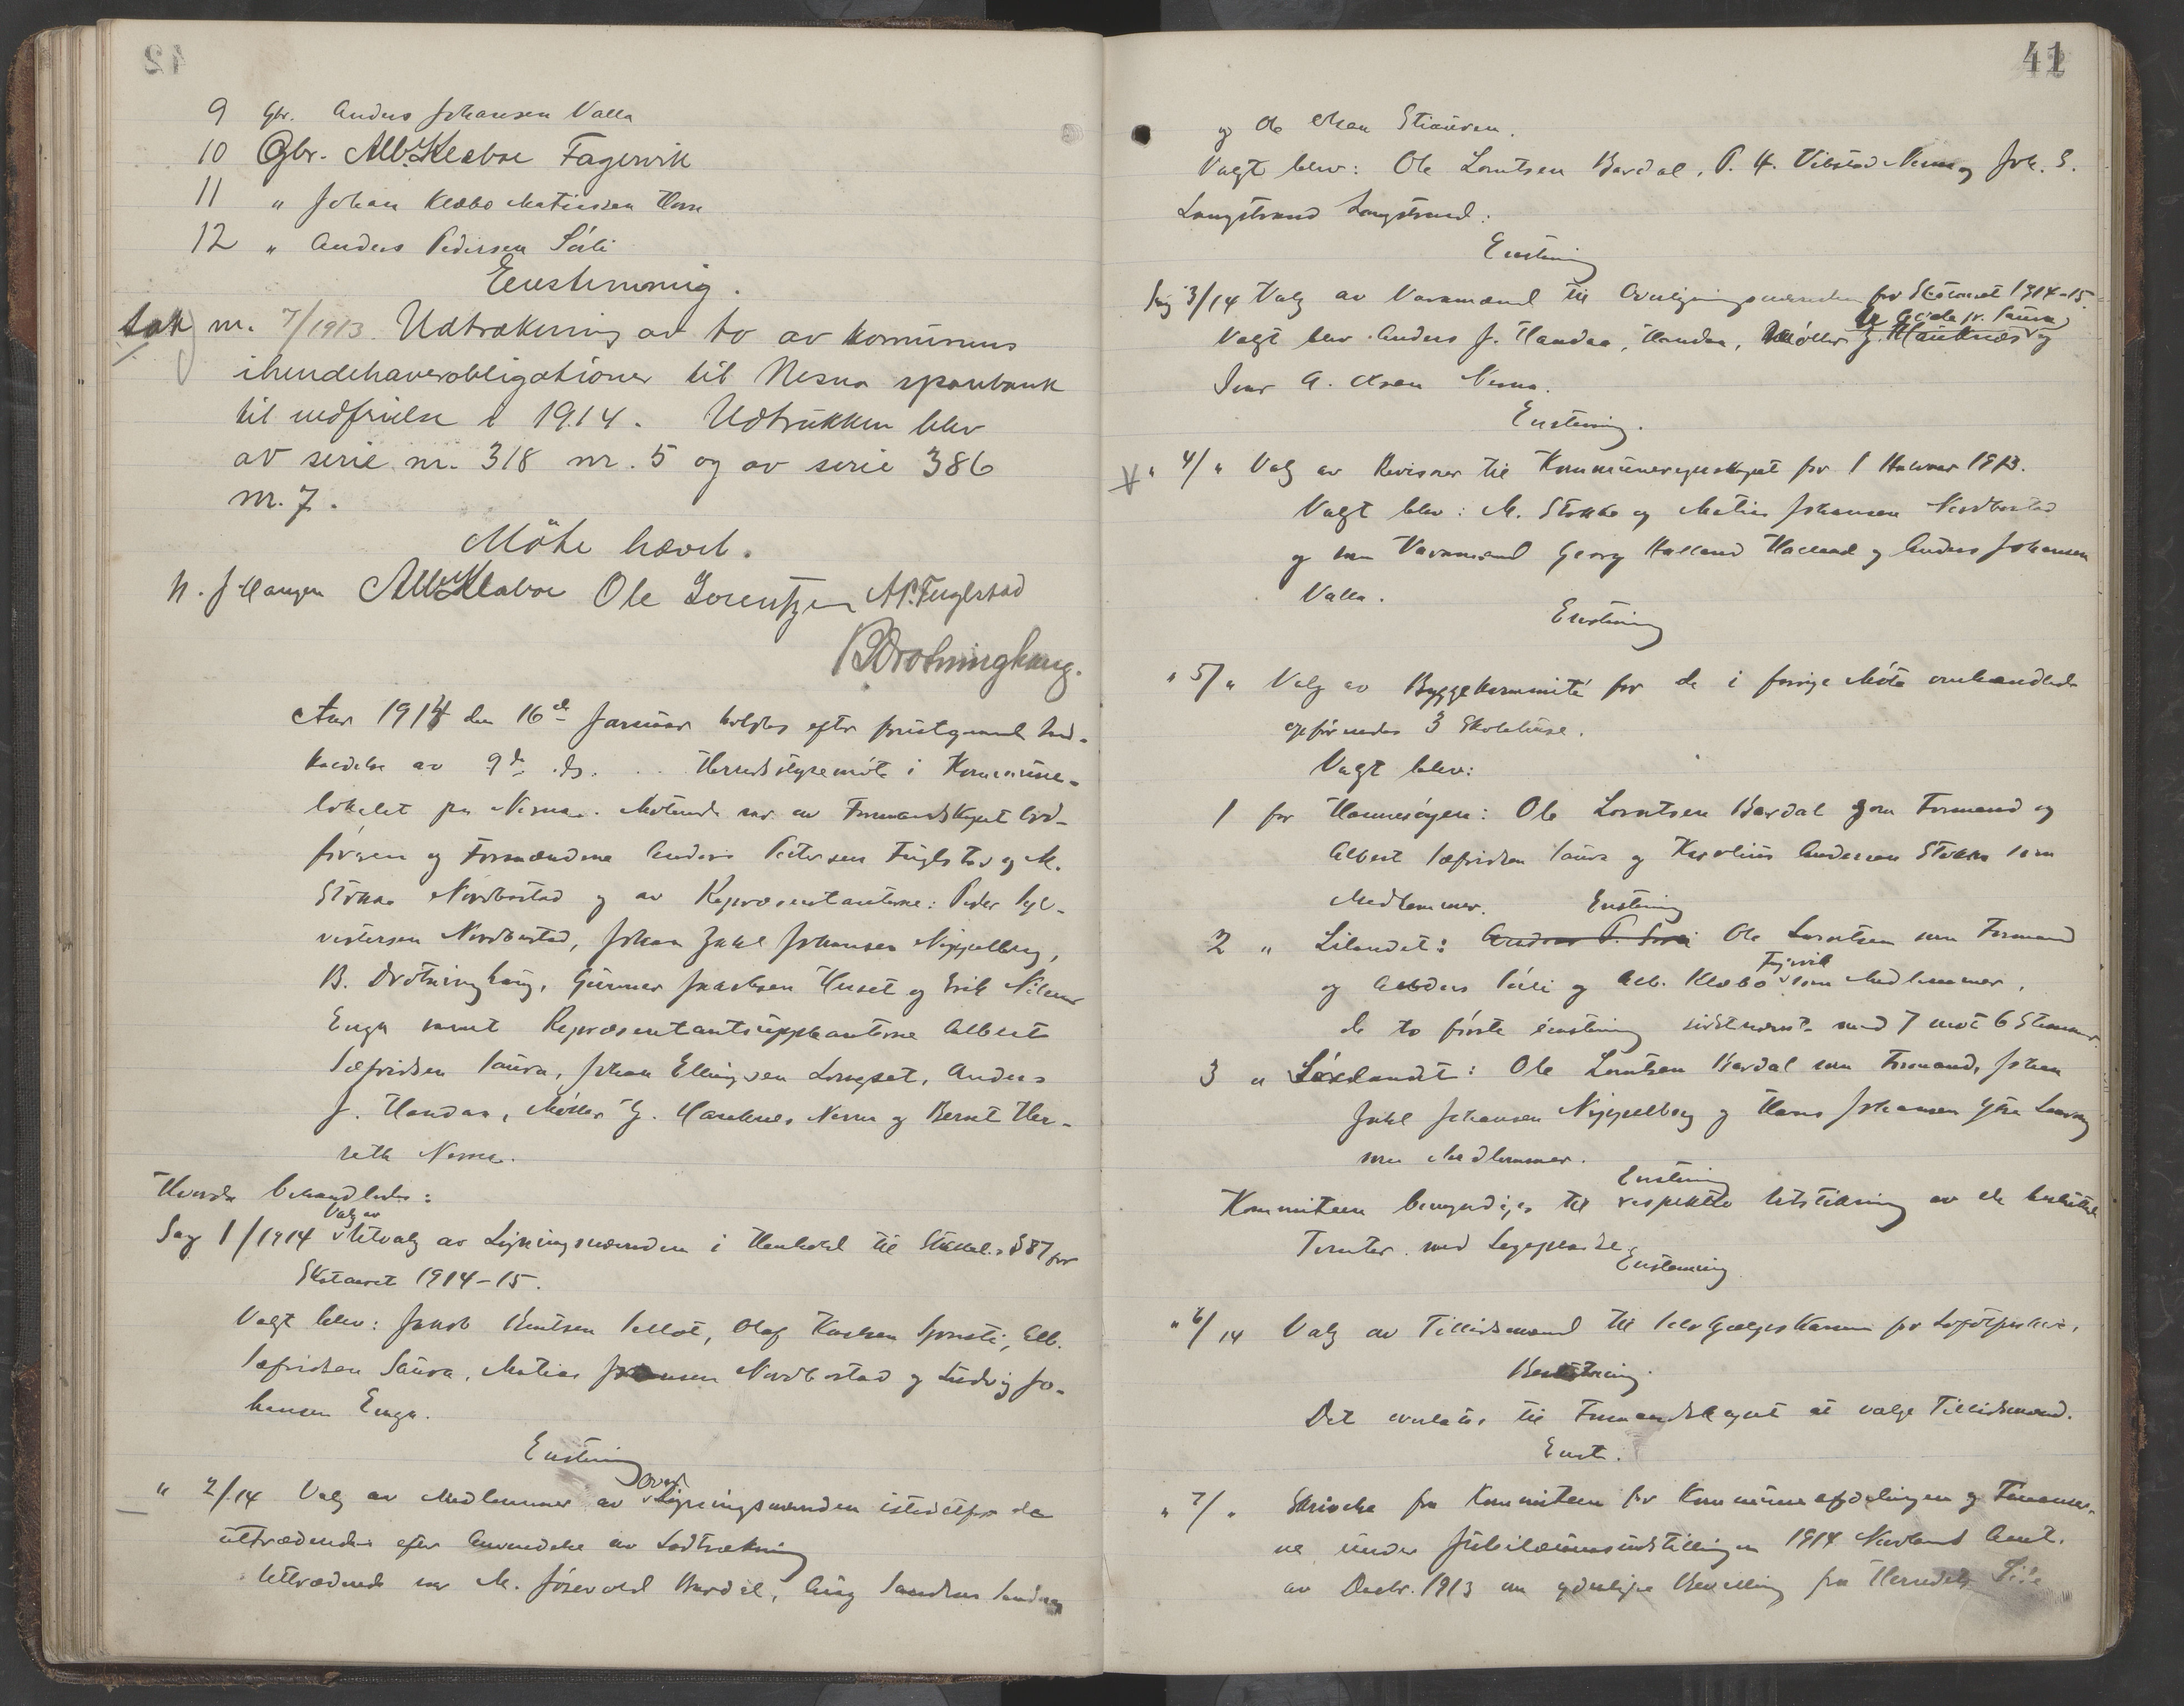 9 Gbr. Anders Johansen Valla
10 Gbr. Alb. Klæboe Fagervik
11 " Johan Klæbo Matiassen Horn
12 " Anders Pedersen Sörli
Eenstemmig.
Sak nr. 7/1913. Udtrækning av to av komunens
ihendehaverobligationer til Nesna sparebank
til indfrielse i 1914. Udtrukken blev
av serie nr. 318 nr. 5 og av serie 386
nr. 7.
Möte hævet.
N. J Haugen Alb Klæboe Ole Lorentzen A P. Fuglstad
B Drotninghaug.
Aar 1914 den 16de Januar holdtes efter forutgaaende Ind-
kaldelse av 9de ds. Herredsstyremöte i Kommune-
lokalet paa Nesna. Mötende var av Formandskapet Ord-
föreren og Formændene Anders Petersen Fuglstad og M.
Stokka Nordbostad og av Repræsentanterne: Peder Syl-
vestersen Nordbostad, Johan Zahl Johansen Nippelberg,
B. Drotninghaug, Gunnar Jakobsen Huset og Erik Nilsen
Enga samt Repræsentantsuppleanterne Albert
Sefridsen Saura, Johan Ellingsen Langset, Anders
J. Handaa, Möller G. Hauknes Nesna og Bernt Her-
seth Nesna.
Hvorda behandledes:
Valg av
Sag 1/1914 Utvalg av Ligningsnævnden i Henhold til § 87 for
Skataaret 1914-15.
Valgt blev: Jakob Bentsen Olaf Alb.
Sefridsen Saura, Matias Johansen Nordbostad og Ludvig Jo-
hansen Enga.
Enstemmig
Over
" 2/14 Valg av Medlemmer av Ligningsnævnden istedetfor de
uttrædende efter Anvendelse av Lodtrækning
Uttrædende var M. Bardal,
41
og Ole Olsen
Valgt blev: Ole Lorntsen Bardal, P. H. Nesna og Joh. E.
Langstrand Langstrand:
Enstemmig
Sag 3/14 Valg av Varamænd til Overligningsnævnden for Skataaret 1914-15
Valgt blev Anders J. Handaa, Handaa, Möller G. Hauknes og
Ivar A. Olsen Nesna.
Enstemmig.
" 4/ " Valg av Revisorer til Kommuneregnskapet for 1 Halvaar 1913.
Valgt blev: M. Stokka og Matias Johansen Nordbostad
og som Varamænd Georg Halland Halland og Anders Johansen
Valla.
Enstemmig
" 5/ " Valg av Byggekommité for de i forrige Möte omhandlede
opförendes 3 Skolehuse.
Valgt blev:
1 for Hannesöyen: Ole Lorntsen Bardal som Formand og
Albert Sefridsen Saura og Karolius Andersen Stokka som
Medlemmer. Enstemmig
2 " Lilandet: Anders P. Sörli Ole Lorntsen som Formand
Fagervik
og Anders Sörli og Alb. Klæbo som Medlemmer,
de to förste enstemmig sidstnævnte med 7 mot 6 Stemmer.
3 " Ole Lorntsen Bardal som Formand, Johan
Zahl Johansen Nippelberg og Hans Johansen
som Medlemmer.
Enstemmig
Komiteen bemyndiges til Utstikning av de
Tomter med Lageplasse.
Enstemmig
" 6/14 Valg av Tillidsmænd til Selvhjælpskassen for Lofotfiskere.
Beslutning.
Det overlates til Formandskapet at vælge Tillidsmænd.
Enst.
" 7/ " Skrivelse fra Komiteen for Kommuneafdelingen og Finanser-
ne under Jubilæumsutstillingen 1914 Nordlands Amt.
av Decbr. 1913 om yderligere Bevilling fra Herredets Side